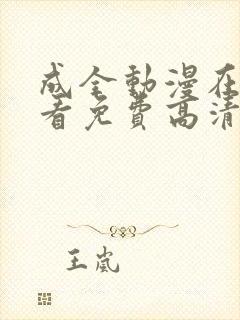 成全動漫在
看免費高清
王嵐